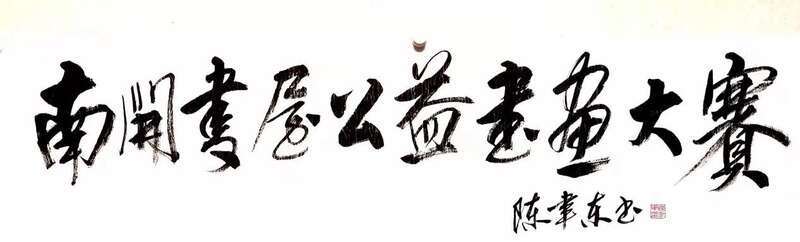 南開書屋公益書畫大賽
陈聿东书